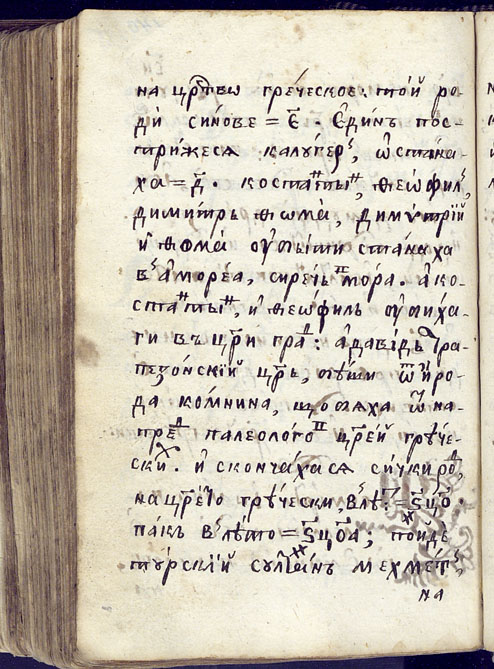 на црⷭ҇тво греческое. той ро-
ди синове = є҃. єдинъ пос-
трижеся калугерꙿ, ѡстана-
ха = д҃. костаⷩ҇тыⷩ҇, ѳеѡфилꙿ,
димитрь ѳома, димѵтрїй
и ѳома ѹбыти станаха
вꙿ амореа, сиречь мора. а ко-
стаⷩ҇тыⷩ҇, и ѳеѡфиль
ги въ цр҃и граⷣ: а давїдь тра-
пезонскїй цр҃ь, ѿ иро-
да комнина, що бяха ѿ на-
преⷣ палеологоⷡ҇ цр҃ей гръче-
скиⷯ. и скончахася сички роⷣ,
на цр҃еⷨто гръчески, вꙿ лѣⷮ = ѕ҃ц҃о
пакъ вꙿ лѣто = ѕ҃ц҃о҃а; пойде
турскїй сулⷮаⷩнъ мехметꙿ,
на